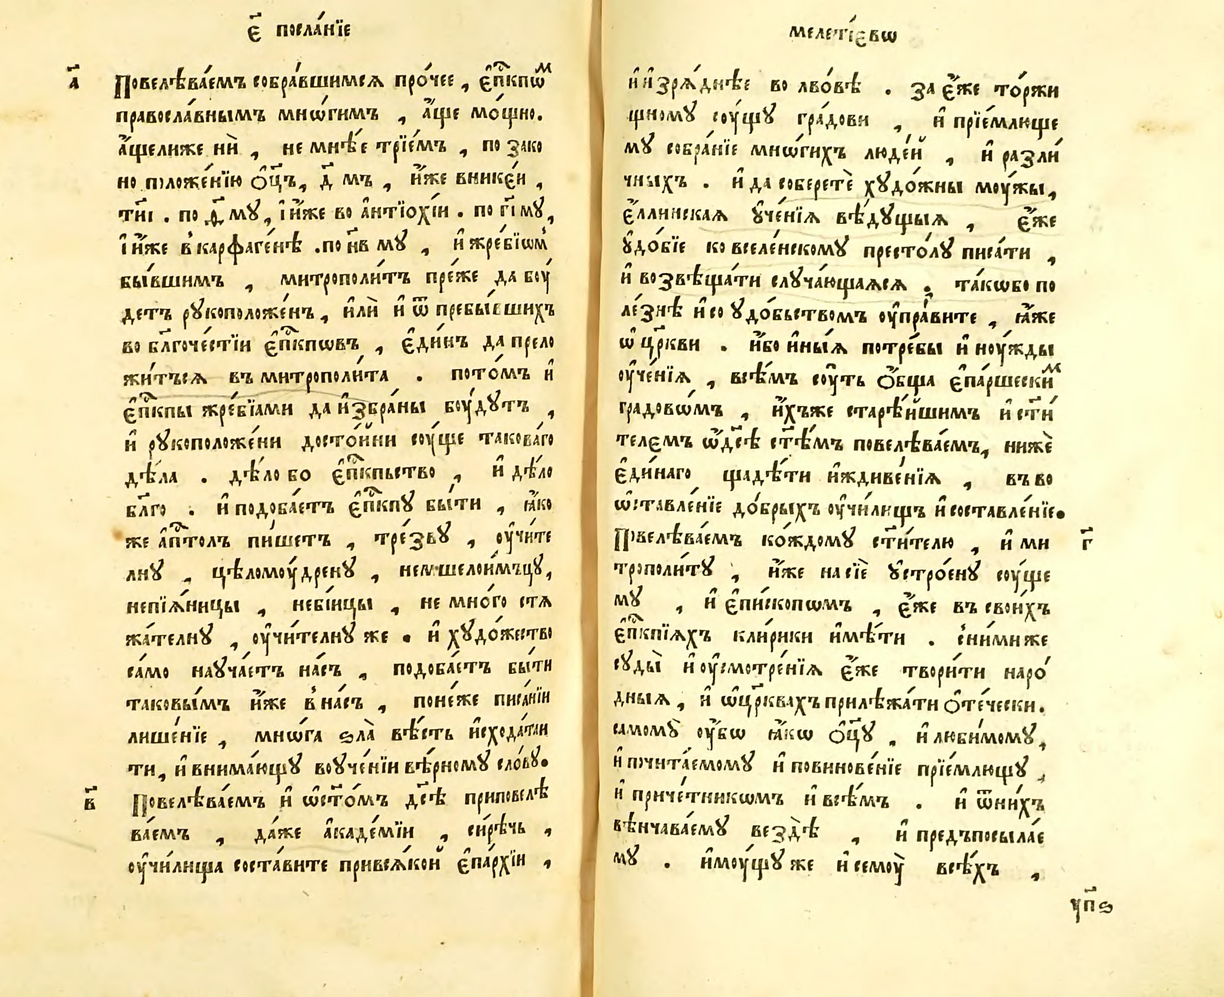 є҃ посла́нїе
а҃
Повелѣва́емъ собра́вшимсѧ про́чее , є҆пⷭ҇кпѡⷨ
правосла́внымъ мно́гимъ , а҆́ще мо́щно.
а҆́щелиже ни̑ , не мнѣ́е трїе́мъ , по зако
но положе́нїю ѻ҆ц҃ъ , д҃ мъ , и҆́же вникеи ,
по д҃ му , і҆ и҆́же во а҆нтїохі́и . по гі҃ му ,
і҆ и҆́же в карфаге́нѣ . по нв҃ му , и҆ жре́бїѡⷨ
бы́вшимъ , митрополи́тъ пре́же да боу́
детъ рꙋкоположе́нъ , и҆лѝ и҆ ѿ пребы́вшихъ
во бл҃гоче́стїи є҆пⷭ҇кпѡвъ , є҆ди́нъ да прело
жи́тъсѧ въ митрополи́та . пото́мъ и҆
є҆пⷭ҇кпы жре́бїами да и҆збра́ны боу́дꙋтъ ,
и҆ рꙋкоположе́ни досто́йни соу́ще таково́гѡ
дѣ́ла . дѣ́ло бо є҆пⷭ҇кпьство , и҆ дѣ́ло
бл҃го . и҆ подоба́етъ є҆пⷭ҇кпꙋ бы́ти , ꙗ҆́ко
же а҆пⷭ҇толъ пи́шетъ , тре́звꙋ , оу҆чи́те
лнꙋ , цѣломоу́дренꙋ , немшелои́мъцꙋ,
непїѧ́ницы , неби́ицы , не мно́го стѧ
жа́телнꙋ , оу҆чи́телнꙋ же . и҆ хꙋдо́жество
са́мо наꙋча́етъ на́съ , подоба́етъ бы́ти
таковы́мъ и҆́же в на́съ , поне́же писа́нїи
лише́нїе , мнѡ́га ѕла̀ вѣ́сть и҆схода́таи
ти, и҆ внима́ющꙋ воуче́нїи вѣ́рномꙋ сло́вꙋ.
в҃
Повелѣва́емъ и҆ ѡ҆ сто́мъ дс҃ѣ приповелѣ
ва́емъ , да́же а҆каде́мїи , си́рѣчь ,
оу҆чи́лища соста́вите привсѧ́кой є҆па́рхїи ,
мелетїєвѡ
и҆ и҆зрѧ́днѣе во льво́вѣ . за є҆́же то́ржи
щномꙋ соу́щꙋ гра́дови , и҆ прїе́млюще
мꙋ собра́нїе мнѡ́гихъ люде́й , и҆ разли́
чныхъ . и҆ да собере́те хꙋдо́жны моу́жы,
є҆́ллинскаѧ ᲂу҆че́нїѧ вѣ́дꙋщыѧ , є҆́же
ᲂу҆до́бїе ко вселе́нскомꙋ престо́лꙋ писа́ти ,
и҆ возвѣща́ти слꙋча́ющаѧсѧ . та́кѡбо по
ле́знѣ и҆ со ᲂу҆до́бьствомъ оу҆пра́вите , ꙗ҆́же
ѡ҆ цр҃кви . и҆́бо и҆ны́ѧ потре́бы и҆ ноу́жды
оу҆че́нїѧ , всѣ́мъ соу́ть ѻ҆́бща є҆парше́скиⷨ
градовѡ́мъ , и҆́хъже старѣ́йшимъ и҆ ст҃и́
телемъ ѡ҆ дс҃ѣ ст҃ѣ́мъ повелѣва́емъ, нижѐ
є҆ди́наго щадѣ́ти и҆ждиве́нїѧ , въ во
ѡ҆ставле́нїе до́брыхъ оу҆чи́лищъ и҆ составле́нїе.
г҃
Повелѣва́емъ ко́ждомꙋ ст҃и́телю , и҆ ми
трополи́тꙋ , и҆́же на сїѐ ᲂу҆строе́нꙋ соу́ще
мꙋ , и҆ є҆пи́скопѡмъ , є҆́же въ свои́хъ
є҆пⷭ҇кпїѧхъ кли́рики и҆мѣ́ти . с ни́миже
сꙋды̀ и҆ оу҆смотре́нїѧ є҆́же твори́ти наро́
дныѧ , и҆ ѡ҆ цр҃квахъ прилѣжа́ти ѻ҆те́чески.
самомꙋ̀ оу҆́бѡ ꙗ҆́кѡ ѻ҆ц҃ꙋ̀ , и҆ люби́момꙋ,
и҆ почита́емомꙋ и҆ повинове́нїе прїе́млющꙋ ,
и҆ приче́тникѡмъ и҆ всѣ́мъ . и҆ ѿ ни́хъ
вѣнчава́емꙋ вездѣ̀ , и҆ предъпосыла́е
мꙋ . и҆моу́щꙋ же и҆ семоу̀ всѣ́хъ ,
уп҃ѕ